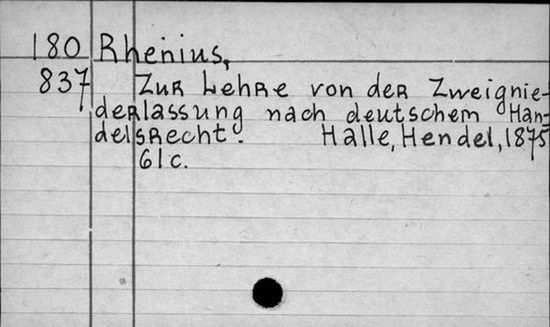 180 Rhenius,
837 Zur Lehre von der Zweignie-
derlassung nach deutschem Han-
delsrecht. Halle, Hendel, 1875
61c.